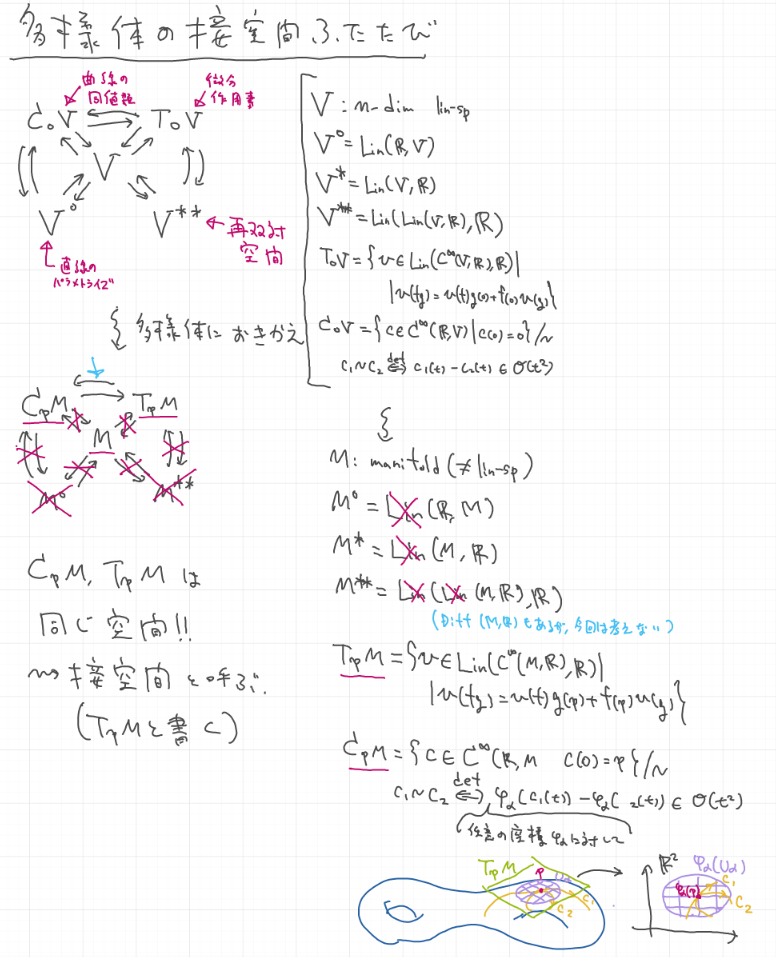 多様体の接空間ふたたび
曲線の
同値類
微分
作用素
C₀V T₀V
V
V° V**
直線の
パラメトライズ
再双対
空間
V : n-dim lin-sp
V° = Lin(ℝ, V)
V* = Lin(V, ℝ)
V** = Lin(Lin(V, ℝ), ℝ)
T₀V = {v ∈ Lin(C^∞(V, ℝ), ℝ) |
| v(fg) = v(f)g(0) + f(0)v(g)}
C₀V = {c ∈ C^∞(ℝ, V) | c(0) = 0}/~
c₁ ~ c₂ def⇔ c₁(t) - c₂(t) ∈ O(t²)
多様体におきかえ
CₚM TₚM
M
M° M**
M : manifold (≠ lin-sp)
M° = Lin(ℝ, M)
M* = Lin(M, ℝ)
M** = Lin(Lin(M, ℝ), ℝ)
(Diff(M, ℝ)もあるが, 今回は考えない)
TₚM = {v ∈ Lin(C^∞(M, ℝ), ℝ) |
| v(fg) = v(f)g(p) + f(p)v(g)}
CₚM = {c ∈ C^∞(ℝ, M c(0) = p}/~
c₁ ~ c₂ def⇔ φα(c₁(t)) - φα( ₂(t)) ∈ O(t²)
任意の座標φαに対して
CₚM, TₚM は
同じ空間!!
⇝ 接空間と呼ぶ.
(TₚMと書く)
TₚM p Uα c₁ c₂
ℝ² φα(Uα)
φα(p) c₁ c₂